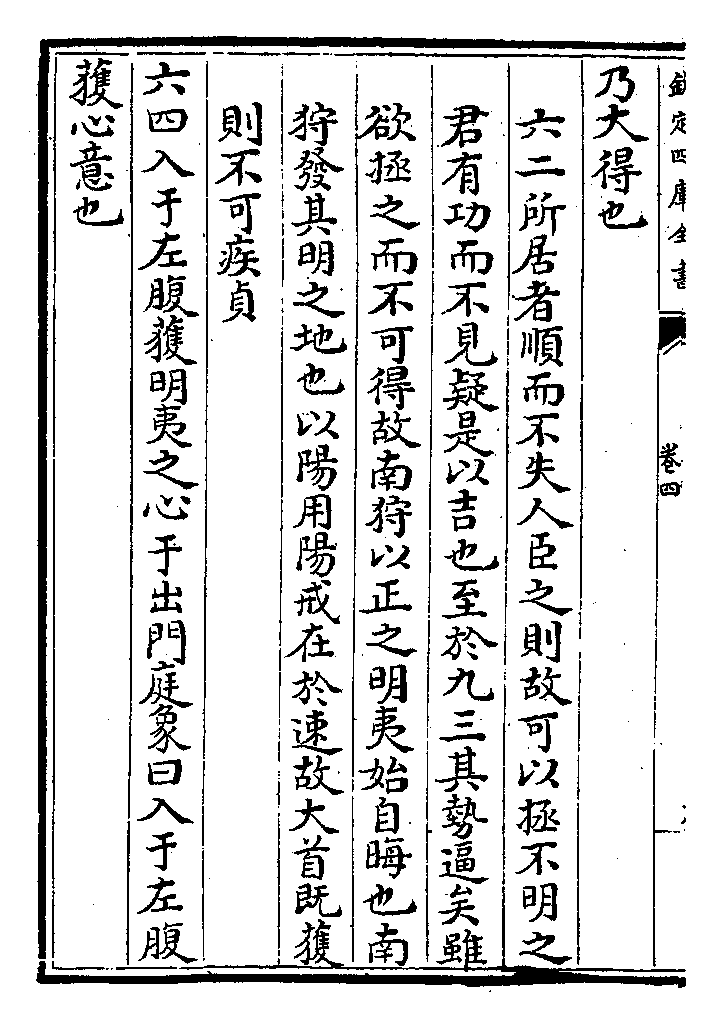 欽定四庫全書
卷四
乃大得也
六二所居者順而不失人臣之則故可以拯不明之
君有功而不見疑是以吉也至於九三其勢逼矣雖
欲拯之而不可得故南狩以正之明夷始自晦也南
狩發其明之地也以陽用陽戒在於速故大首既獲
則不可疾貞
六四入于左腹獲明夷之心于出門庭象曰入于左腹
獲心意也